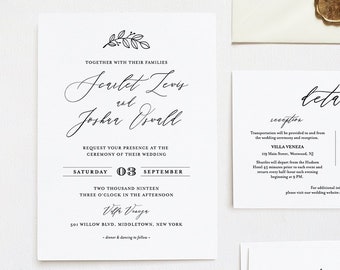 TOGETHER WITH THEIR FAMILIES
Scarlet Lewis
and
Joshua Oswald
REQUEST YOUR PRESENCE AT THE
CEREMONY OF THEIR WEDDING
SATURDAY 03 SEPTEMBER
TWO THOUSAND NINETEEN
THREE O'CLOCK IN THE AFTERNOON
Villa Veneza
501 WILLOW BLVD, MIDDLETOWN, NEW YORK
- dinner & dancing to follow -
deta
reception
Transportation will be provided to and from
the wedding ceremony and reception.
VILLA VENEZA
Shuttles will depart from the Hudson
Hotel 45 minutes prior to each event and
return every half-hour each evening
beginning at 9 PM.
For additional
please visit our wedding website